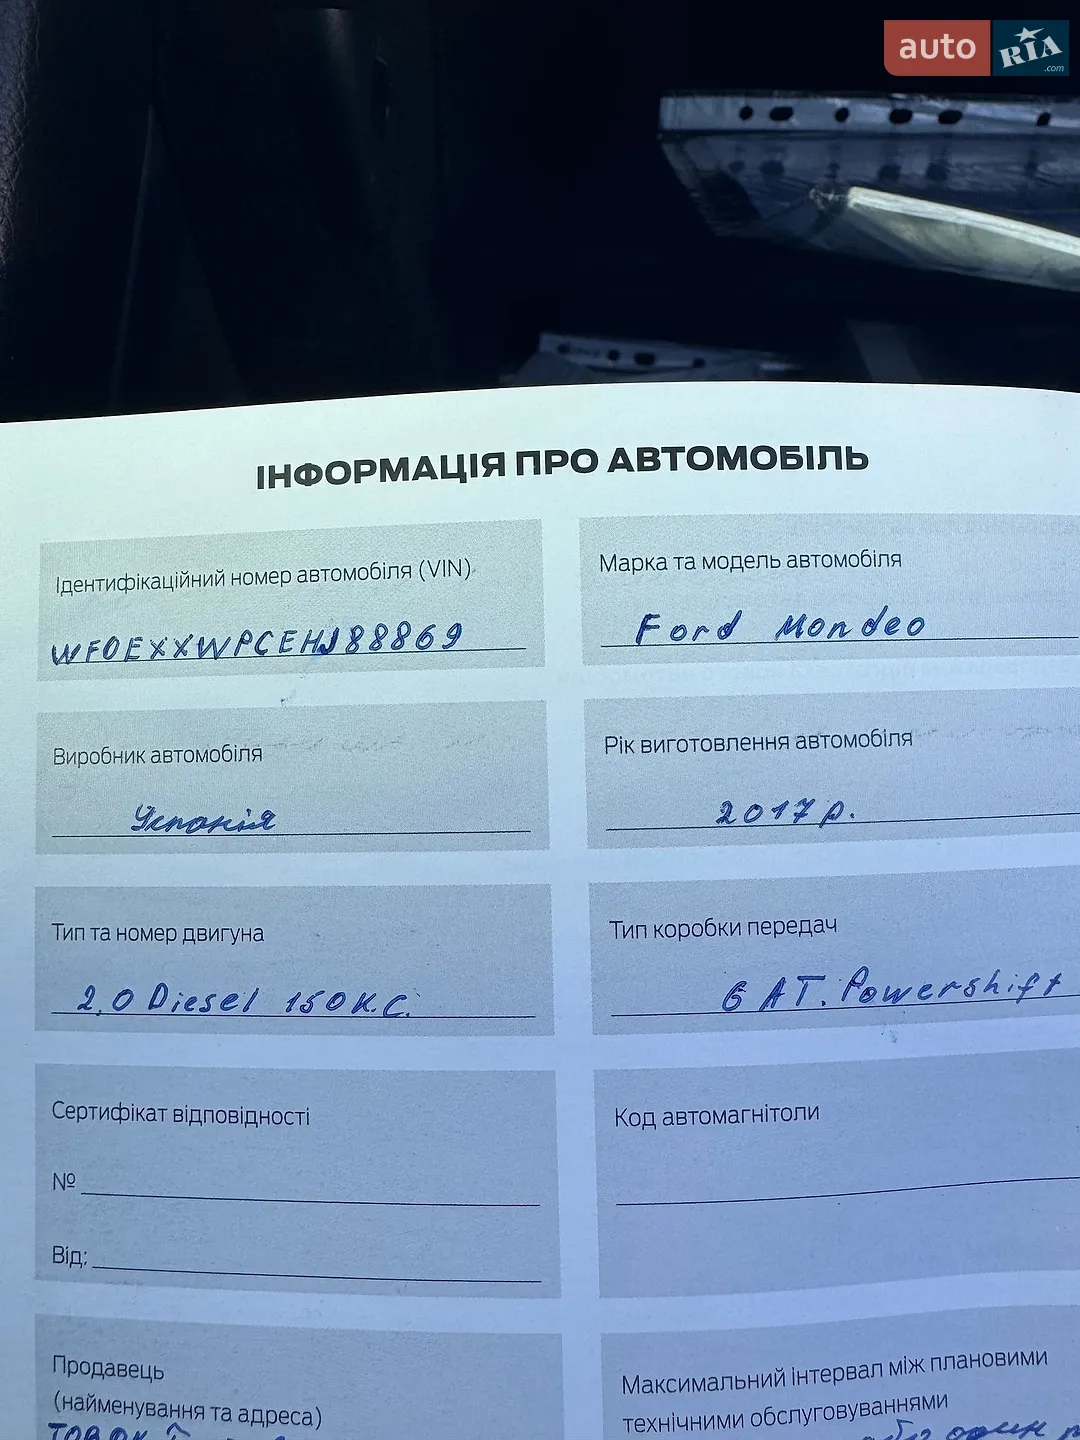 auto RIA.com
ІНФОРМАЦІЯ ПРО АВТОМОБІЛЬ
Ідентифікаційний номер автомобіля (VIN)
WF0EXXWPCEHJ88869
Марка та модель автомобіля
Ford Mondeo
Виробник автомобіля
Іспанія
Рік виготовлення автомобіля
2017 р.
Тип та номер двигуна
2,0 Diesel 150 К.С.
Тип коробки передач
6 AT. Powershift
Сертифікат відповідності
№
Від:
Код автомагнітоли
Продавець
(найменування та адреса)
Максимальний інтервал між плановими
технічними обслуговуваннями
або один